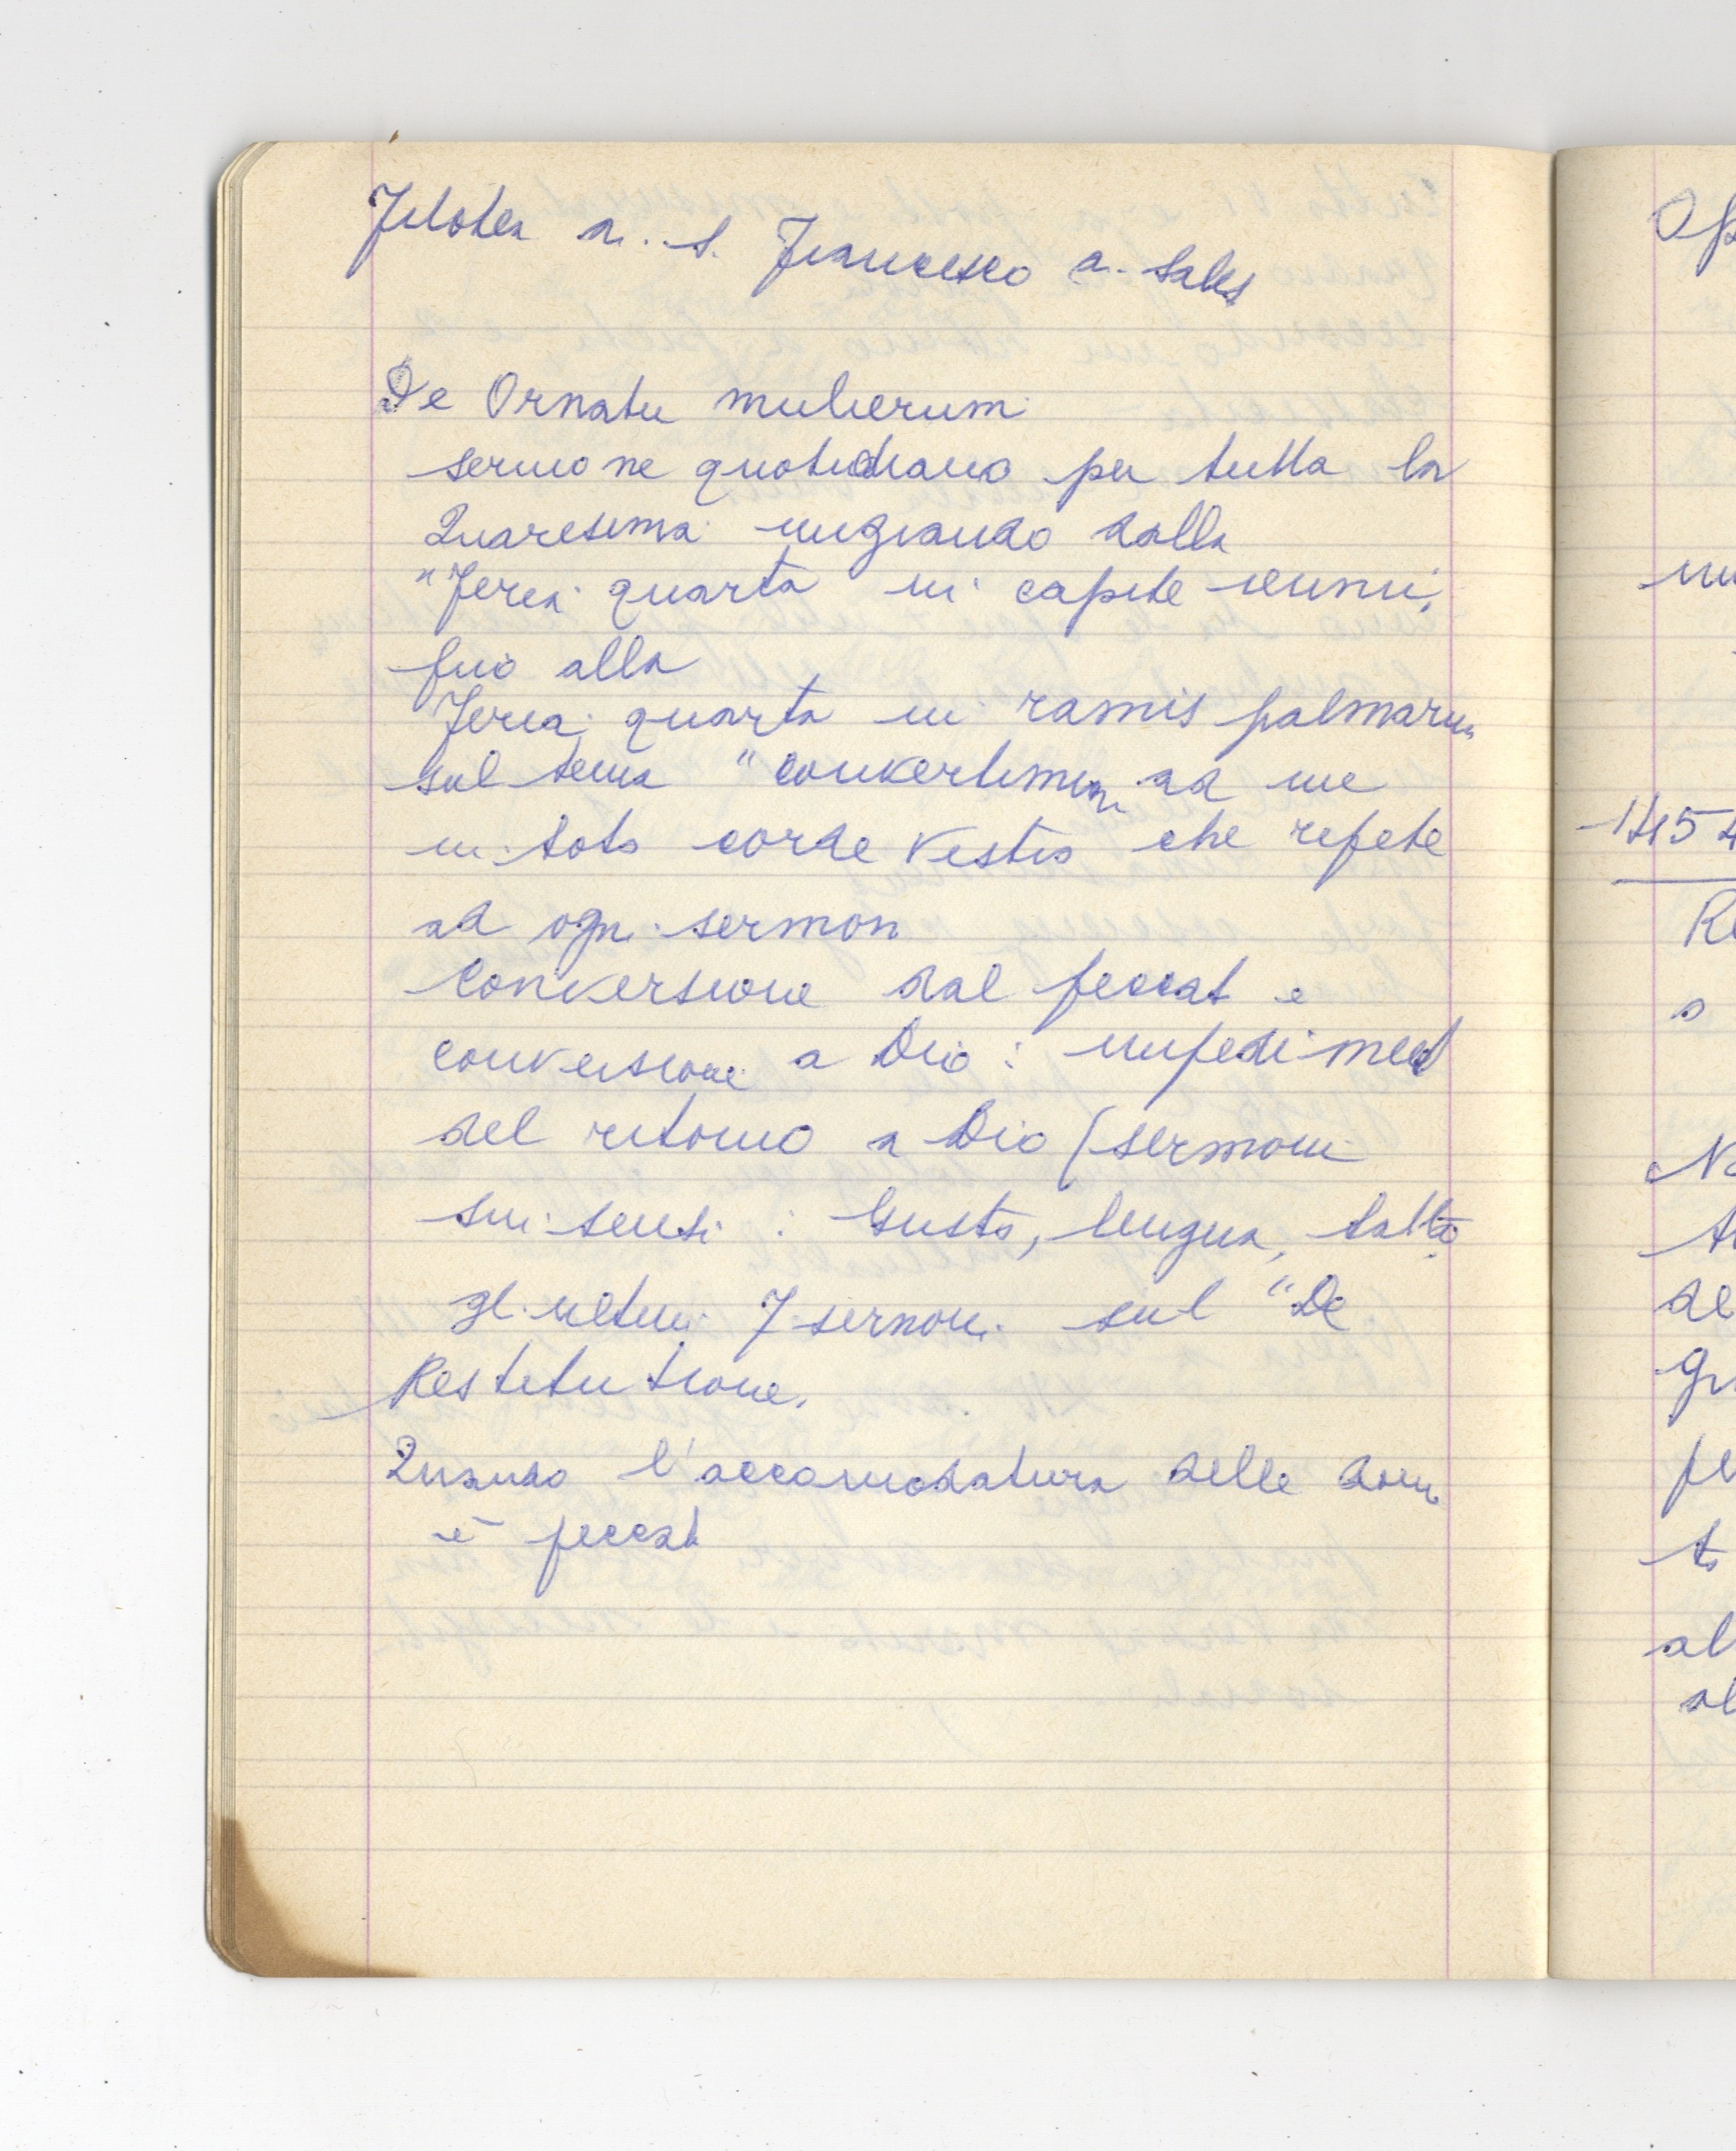 Filotea di S. Francesco di Sales
De Ornatu mulierum
sermone quotidiano per tutta la
Quaresima iniziando dalla
"Feria quarta in capite ieiunii,
fino alla
Feria quarta in ramis palmarum
sul tema "convertimini ad me
in toto corde vestro che repete
ad ogni sermon
Conversione dal peccat e
conversione a Dio: impediment
del ritorno a Dio (sermoni
sui sensi: Gusto, lingua, tatto
gli ultimi 7 sermoni sul "De
Restitutione.
Quando l'accomodatura delle donn
è peccat
Op
1454
Re
s
No
de
pe
to
al
al